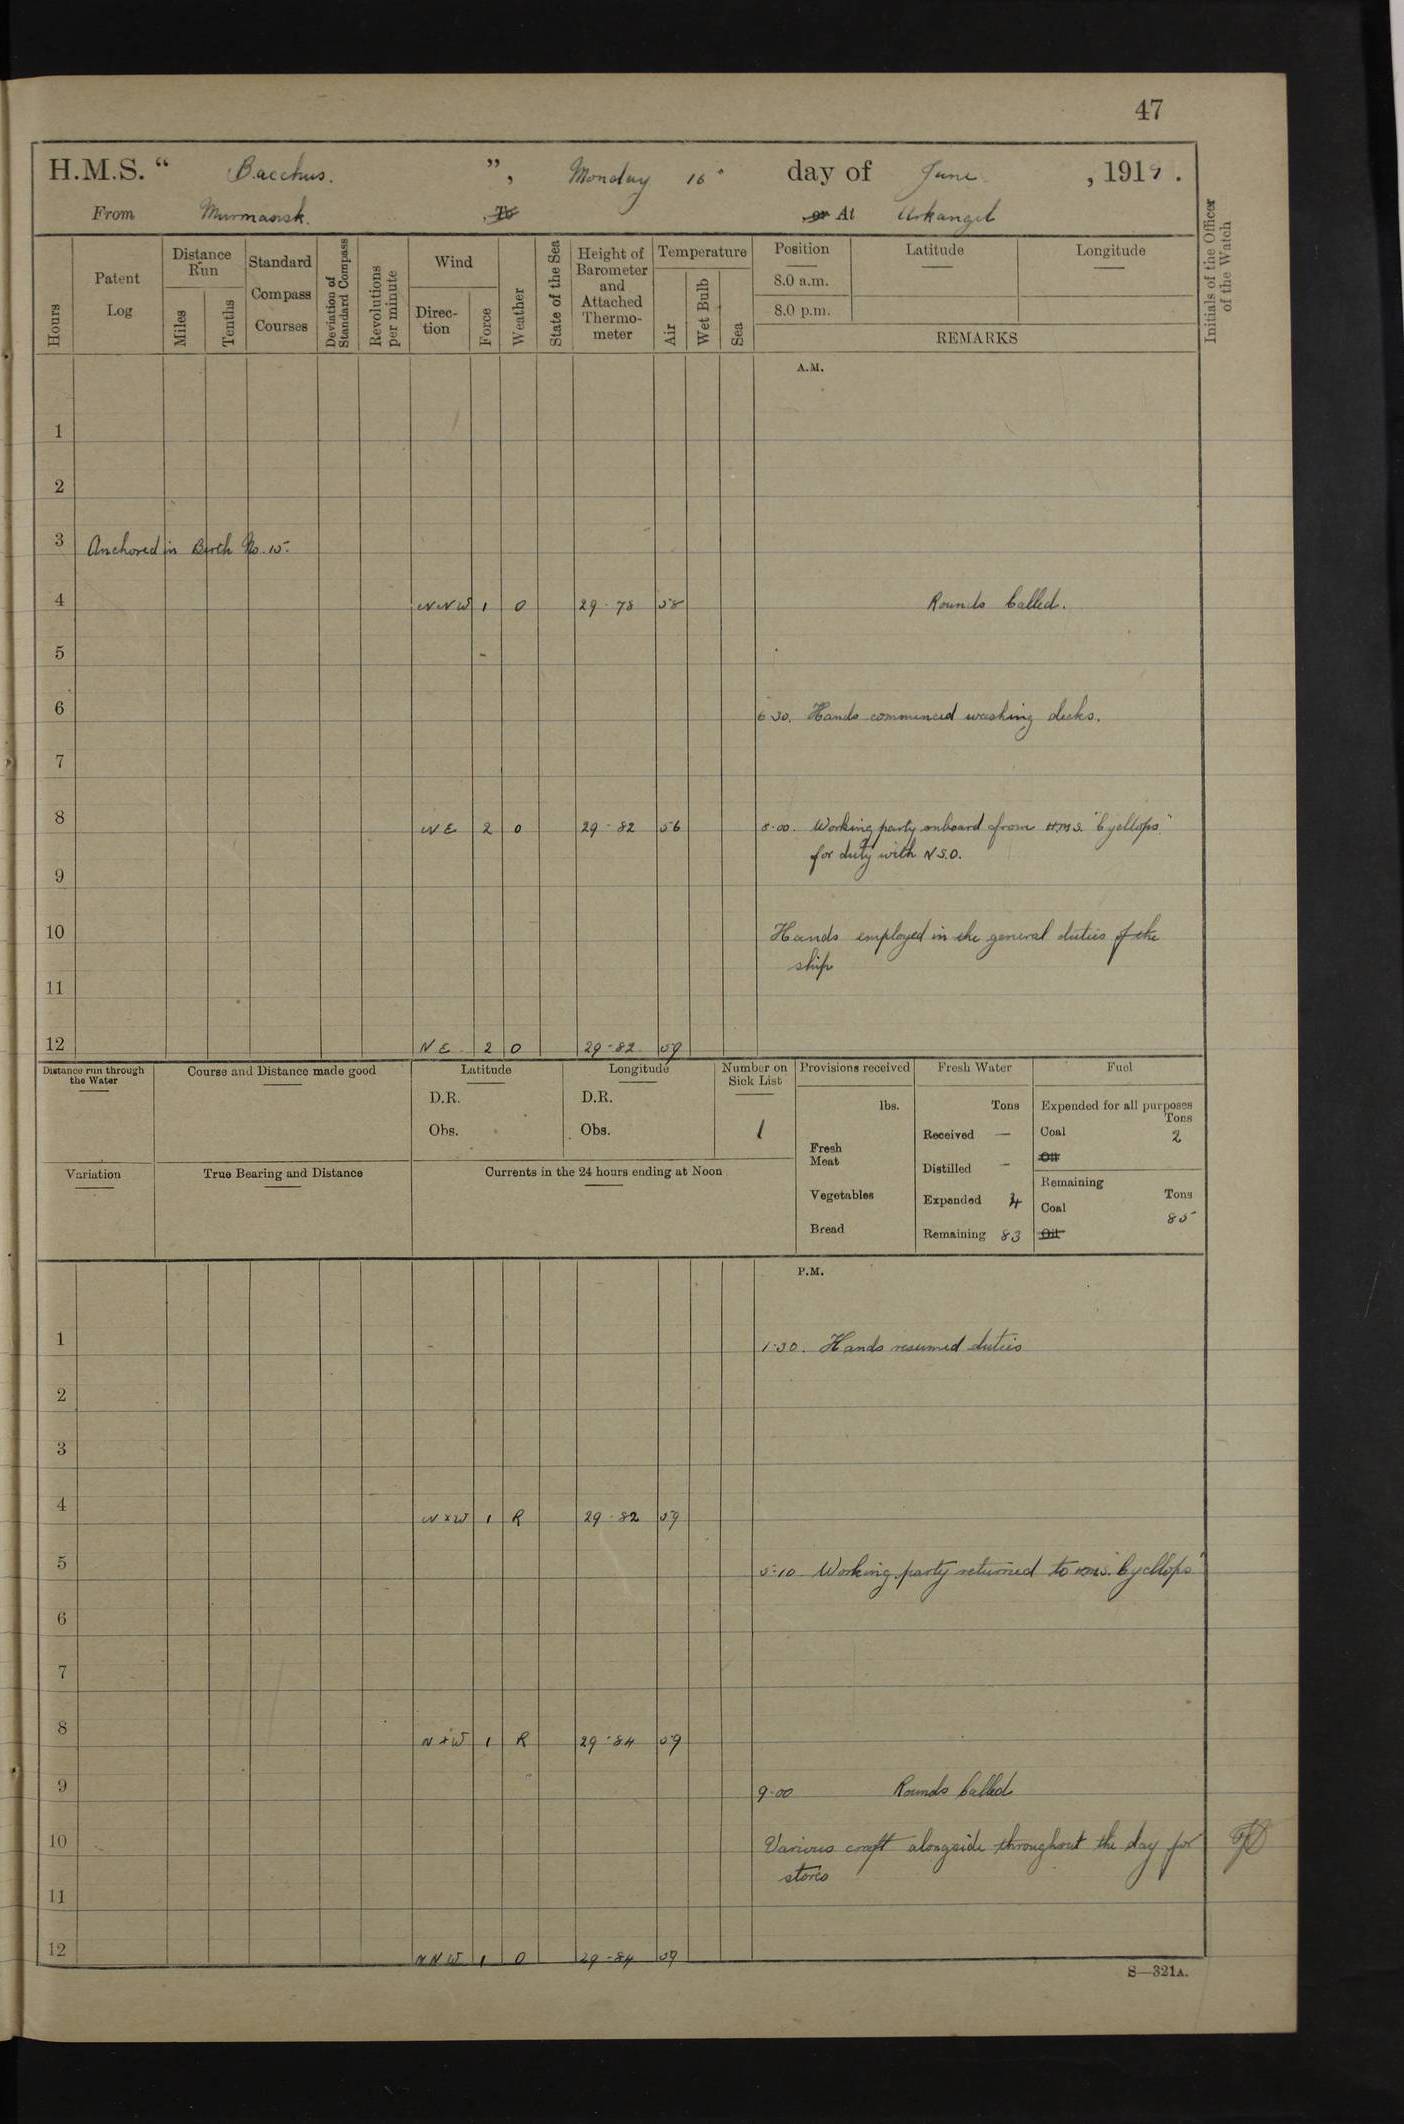 47
H.M.S. “ Bacchus. ”, Monday 16" day of June , 1919 .
From Murmansk. To or At Arkangel
Hours
Patent Log
Distance Run
Miles
Tenths
Standard Compass Courses
Deviation of Standard Compass
Revolutions per minute
Wind
Direc-tion
Force
Weather
State of the Sea
Height of Barometer and Attached Thermo-meter
Temperature
Air
Wet Bulb
Sea
Position
8.0 a.m.
8.0 p.m.
Latitude
Longitude
REMARKS
Initials of the Officer of the Watch
A.M.
1
2
3 Anchored in Berth No. 15.
4 NNW 1 O 29-78 58 Rounds Called.
5
6 6 30. Hands commenced washing decks.
7
8 NE 2 O 29-82 56 8.00. Working party onboard from H.M.S. "Cycllops."
for duty with N.S.O.
9
10 Hands employed in the general duties of the
ship
11
12 NE 2 O 29-82 59
Distance run through the Water
Course and Distance made good
Latitude
D.R.
Obs.
Longitude
D.R.
Obs.
Number on Sick List
1
Provisions received
lbs.
Fresh Meat
Vegetables
Bread
Fresh Water
Tons
Received —
Distilled —
Expended 4
Remaining 83
Fuel
Expended for all purposes
Tons
Coal 2
Oil
Remaining
Tons
Coal 85
Oil
Variation
True Bearing and Distance
Currents in the 24 hours ending at Noon
P.M.
1 1.30. Hands resumed duties
2
3
4 NxW 1 R 29-82 59
5 5.10 Working party returned to H.M.S. "Cycllops"
6
7
8 NxW 1 R 29-84 59
9 9.00 Rounds Called
10 Various craft alongside throughout the day for
stores
11
12 NNW 1 O 29-84 59
S—321A.